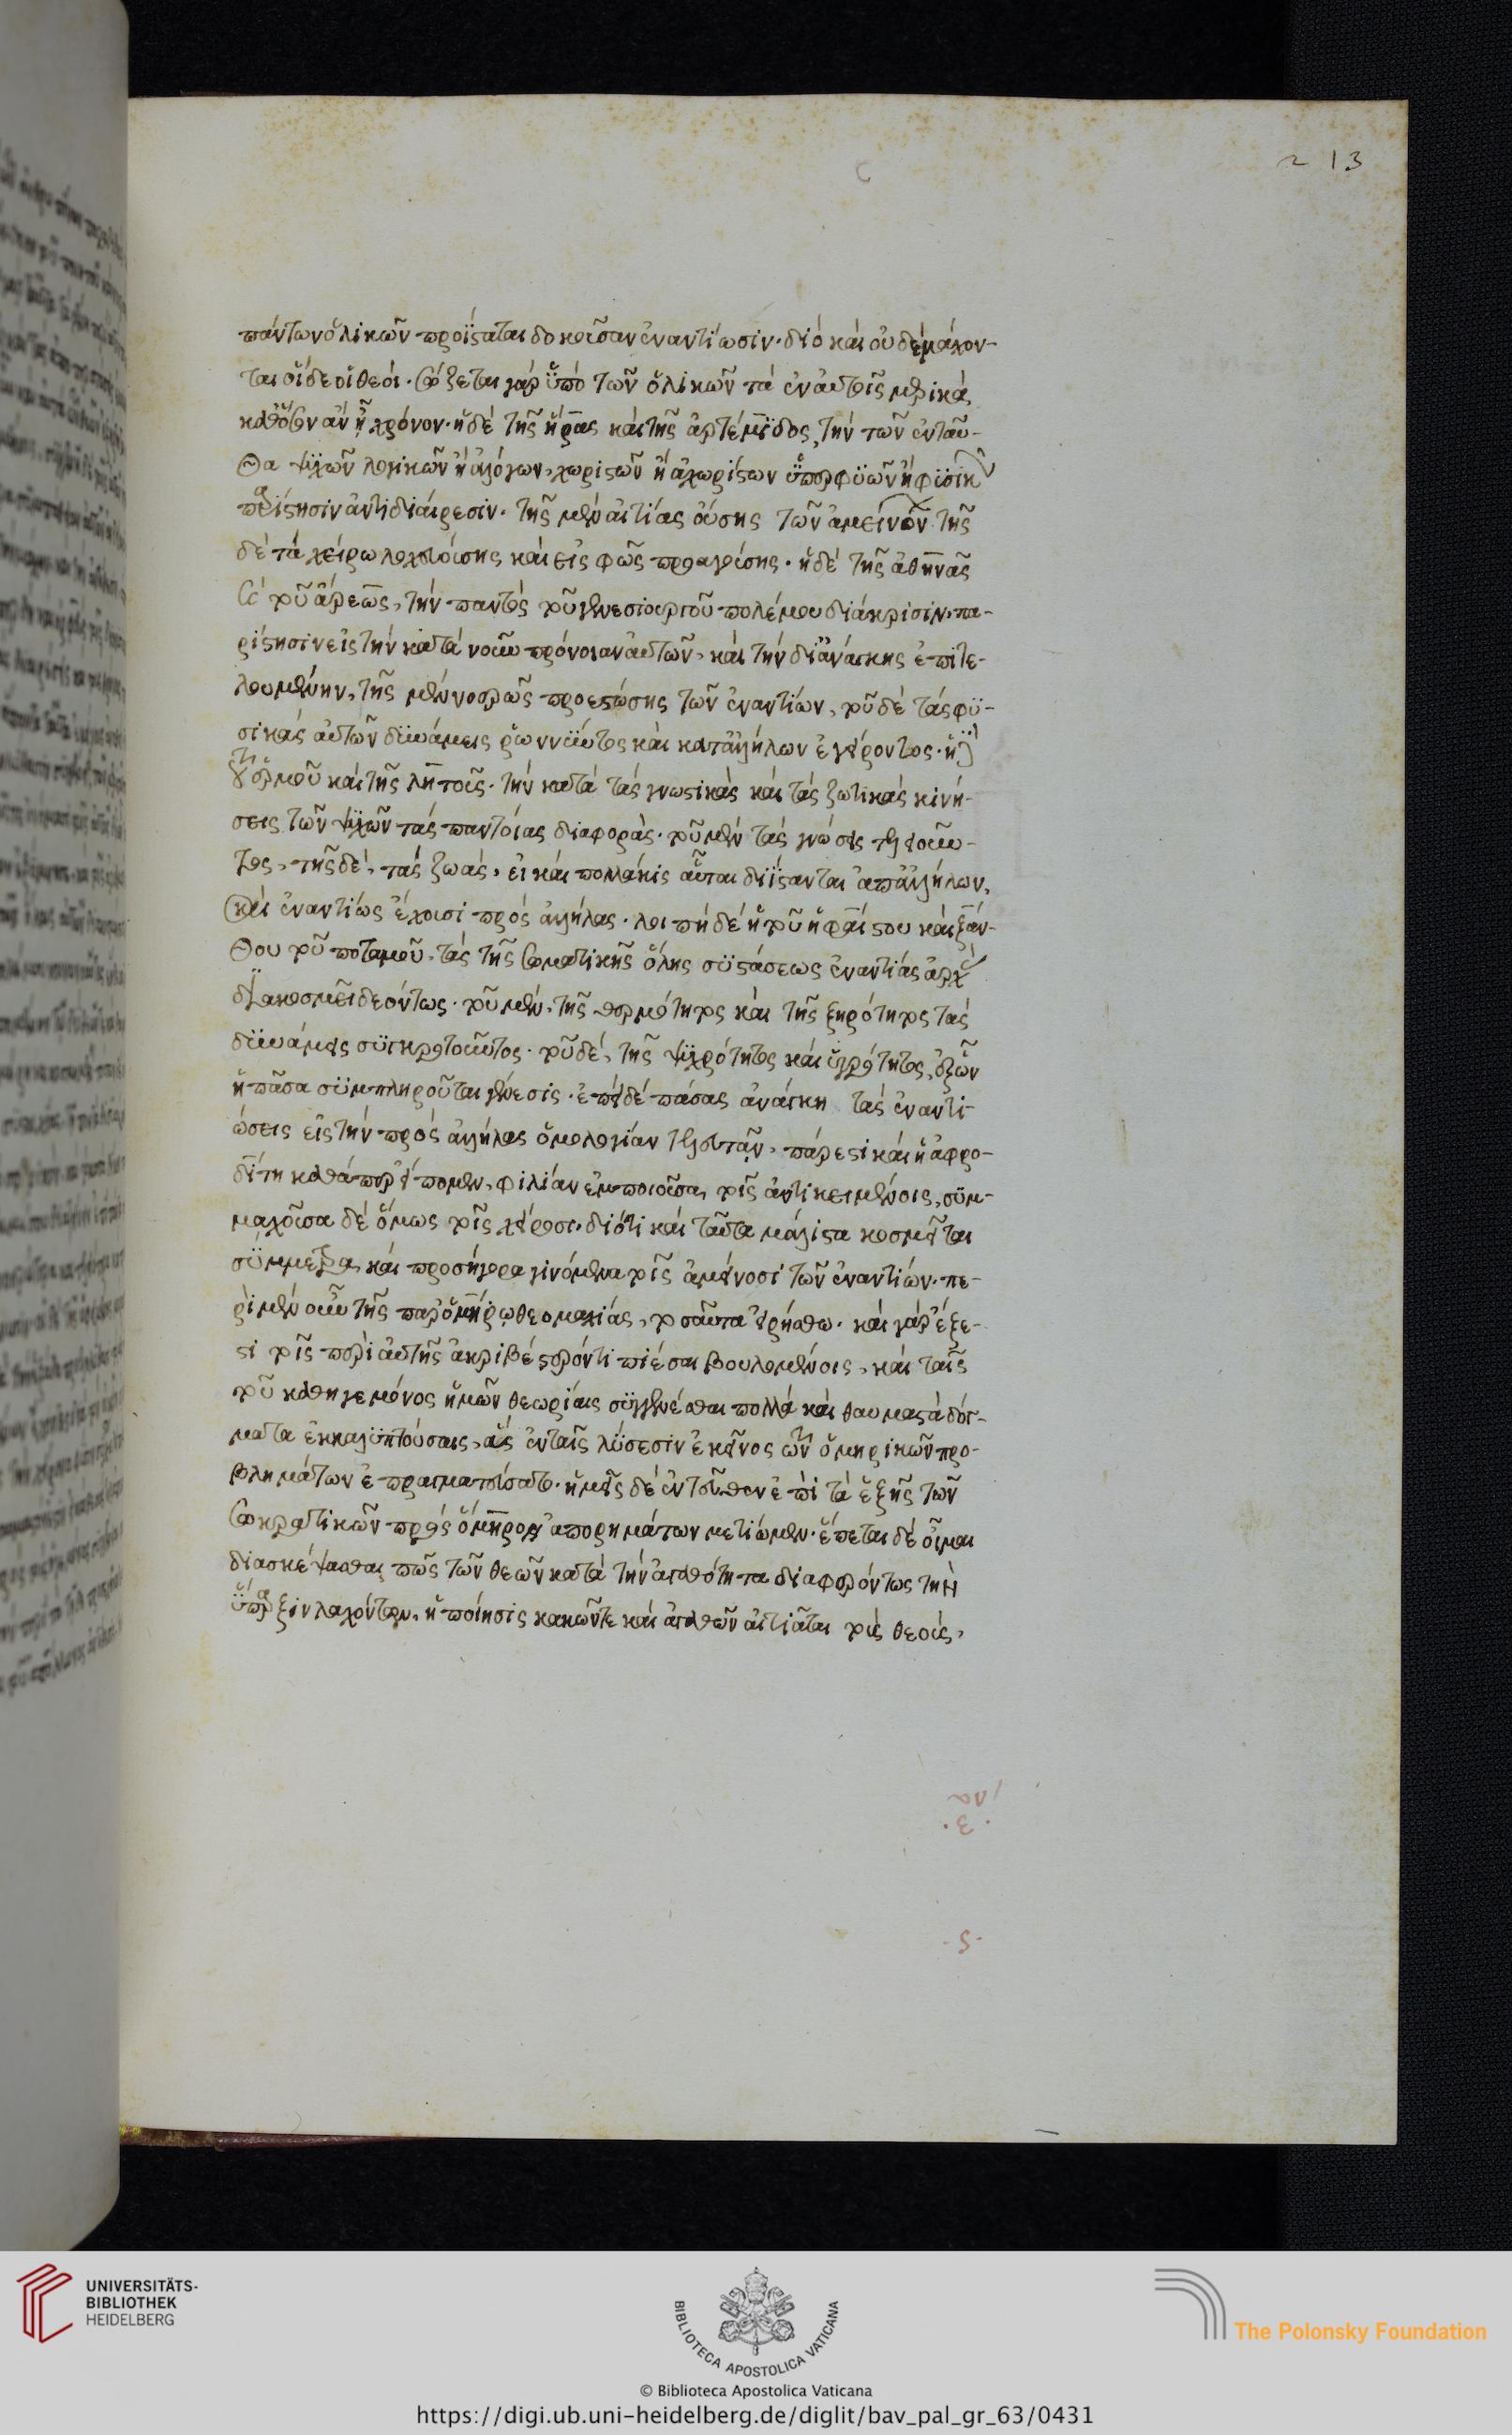 πάντων ὁλικῶν προΐσταται δοκοῦσαν ἐναντίωσιν· διὸ καὶ οὐδὲ μάχον-
ται οἵδε οἱ θεοί· σώζεται γὰρ ὑπὸ τῶν ὁλικῶν τὰ ἐν αὐτοῖς μερικὰ
καθ' ὅσον ἂν ᾖ χρόνον· ἡ δὲ τῆς ἥρας καὶ τῆς ἀρτέμιδος, τὴν τῶν ἐνταῦ-
θα ψυχῶν λογικῶν ἢ ἀλόγων, χωριστῶν ἢ ἀχωρίστων ὑπερφυῶν ἢ φυσικῶν
παρίστησιν ἀντιδιαίρεσιν· τῆς μὲν αἰτίας οὔσης τῶν ἀμεινόνων· τῆς
δὲ τὰ χείρω λοχευούσης καὶ εἰς φῶς προαγούσης· ἡ δὲ τῆς ἀθηνᾶς
καὶ τοῦ ἄρεως, τὴν παντὸς τοῦ γενεσιουργοῦ πολέμου διάκρισιν πα-
ρίστησιν εἰς τὴν κατὰ νοῦν πρόνοιαν αὐτῶν, καὶ τὴν δι' ἀνάγκης ἐπιτε-
λουμένην, τῆς μὲν νοερῶς προεστώσης τῶν ἐναντίων, τοῦ δὲ τὰς φυ-
σικὰς αὐτῶν δυνάμεις ῥωννύντος καὶ κατ' ἀλλήλων ἐγείροντος· ἡ δὲ
τοῦ ἑρμοῦ καὶ τῆς λητοῦς· τὴν κατὰ τὰς γνωστικὰς καὶ τὰς ζωτικὰς κινή-
σεις τῶν ψυχῶν τὰς παντοίας διαφοράς· τοῦ μὲν τὰς γνώσεις τελειοῦν-
τος, τῆς δὲ, τὰς ζωάς, εἰ καὶ πολλάκις αὗται διίστανται ἀπ' ἀλλήλων,
καὶ ἐναντίως ἔχουσι πρὸς ἀλλήλας· λοιπὴ δὲ ἡ τοῦ ἡφαίστου καὶ ξάν-
θου τοῦ ποταμοῦ, τὰς τῆς σωματικῆς ὅλης συστάσεως ἐναντίας ἀρχὰς
διακοσμεῖ δεόντως· τοῦ μὲν, τῆς θερμότητος καὶ τῆς ξηρότητος τὰς
δυνάμεις συγκροτοῦντος· τοῦ δὲ, τῆς ψυχρότητος καὶ ὑγρότητος, ἐξ ὧν
ἡ πᾶσα συμπληροῦται γένεσις· ἐπεὶ δὲ πάσας ἀνάγκη τὰς ἐναντι-
ώσεις εἰς τὴν πρὸς ἀλλήλας ὁμολογίαν τελευτᾶν, πάρεστι καὶ ἡ ἀφρο-
δίτη καθάπερ εἴπομεν, φιλίαν ἐμποιοῦσα τοῖς ἀντικειμένοις, συμ-
μαχοῦσα δὲ ὅμως τοῖς χείροσι· διότι καὶ ταῦτα μάλιστα κοσμεῖται
σύμμετρα καὶ προσήγορα γινόμενα τοῖς ἀμείνοσι τῶν ἐναντίων· πε-
ρὶ μὲν οὖν τῆς παρ' ὁμήρῳ θεομαχίας, τοσαῦτα εἰρήσθω· καὶ γὰρ ἔξε-
στι τοῖς περὶ αὐτῆς ἀκριβέστερόν τι πιέσαι βουλομένοις, καὶ ταῖς
τοῦ καθηγεμόνος ἡμῶν θεωρίαις συγγενέσθαι πολλὰ καὶ θαυμαστὰ δόγ-
ματα ἐκκαλυπτούσαις, ἃς ἐν ταῖς λύσεσιν ἐκεῖνος τῶν ὁμηρικῶν προ-
βλημάτων ἐπραγματεύσατο· ἡμεῖς δὲ ἐντεῦθεν ἐπὶ τὰ ἑξῆς τῶν
σωκρατικῶν πρὸς ὅμηρον ἀπορημάτων μετίωμεν· ἕπεται δὲ οἶμαι
διασκέψασθαι πῶς τῶν θεῶν κατὰ τὴν ἀγαθότητα διαφερόντως τὴν
ὕπαρξιν λαχόντων, ἡ ποίησις κακῶν τε καὶ ἀγαθῶν αἰτιᾶται τοὺς θεούς,
213
UNIVERSITÄTS-
BIBLIOTHEK
HEIDELBERG
BIBLIOTECA APOSTOLICA VATICANA
© Biblioteca Apostolica Vaticana
The Polonsky Foundation
https://digi.ub.uni-heidelberg.de/diglit/bav_pal_gr_63/0431